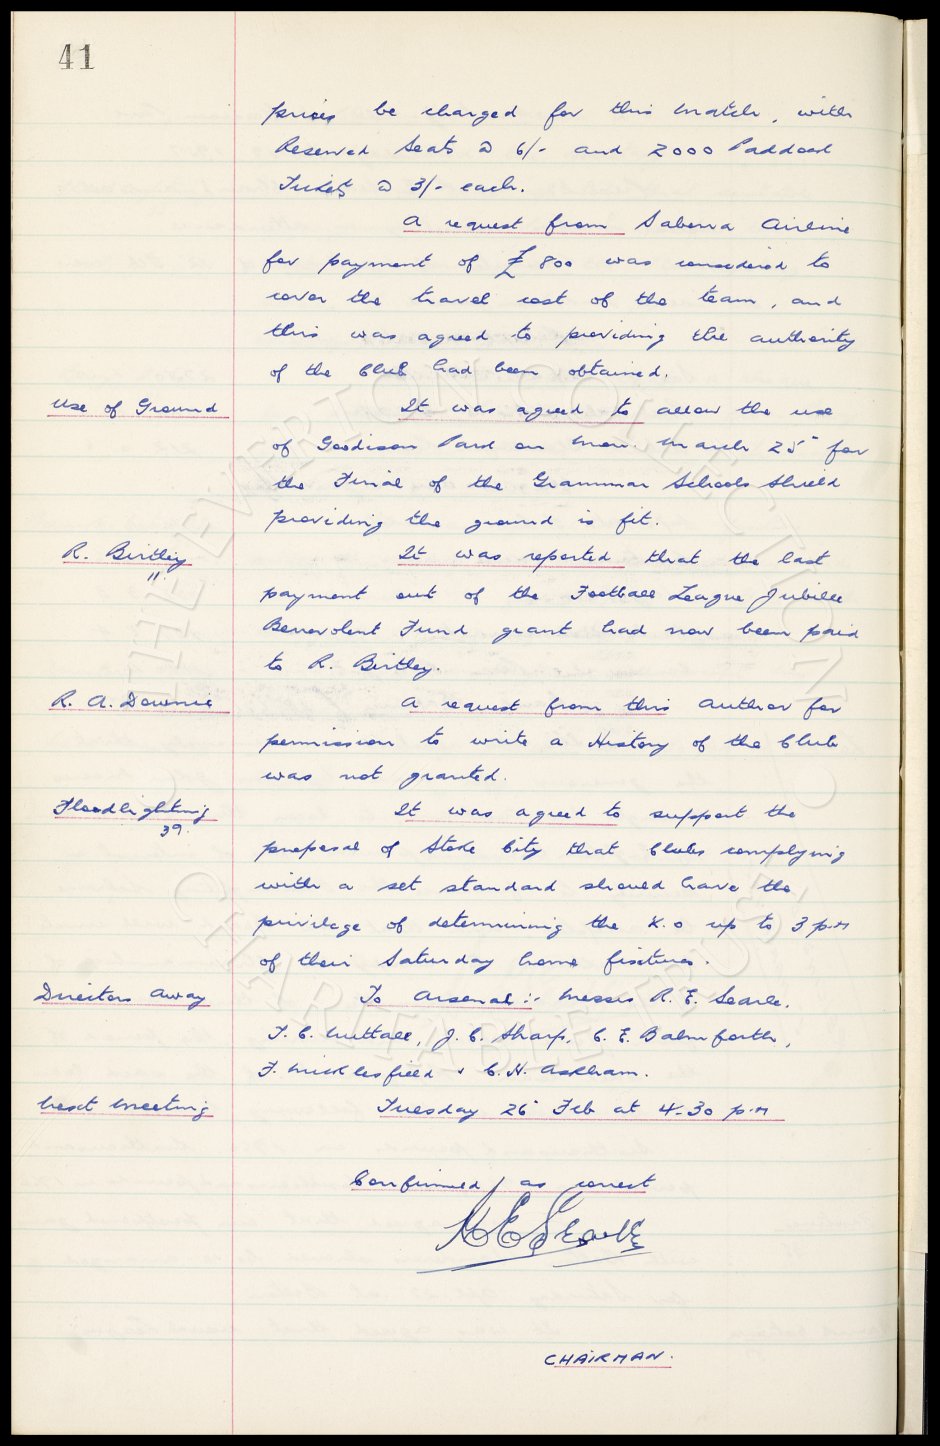 41
prices be charged for this match, with
Reserved Seats @ 6/- and 2000 Paddock
Tickets @ 3/- each.
A request from Sabena Airline
for payment of £800 was considered to
cover the travel cost of the team, and
this was agreed to providing the authority
of the Club had been obtained.
Use of Ground
It was agreed to allow the use
of Goodison Park on Mon. March 25" for
the Final of the Grammar Schools Shield
providing the ground is fit.
R. Birtley
11.
It was reported that the last
payment out of the Football League Jubilee
Benevolent Fund grant had now been paid
to R. Birtley.
R. A. Downie
A request from this author for
permission to write a History of the Club
was not granted.
Floodlighting
39.
It was agreed to support the
proposal of Stoke City that Clubs complying
with a set standard should have the
privilege of determining the K.O up to 3 p.m
of their Saturday home fixtures.
Directors Away
To Arsenal :- Messrs R. E. Searle,
T. C. Nuttall, J. C. Sharp, C. E. Balmforth,
F. Micklesfield & C. H. Askham.
Next Meeting
Tuesday 26" Feb at 4-30 p.m
Confirmed as correct
R E Searle
CHAIRMAN.
THE EVERTON COLLECTION
CHARITABLE TRUST